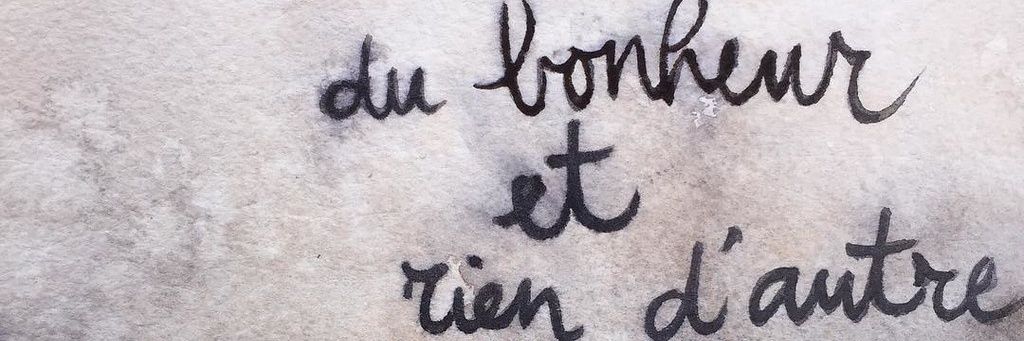 du bonheur
et
rien d'autre